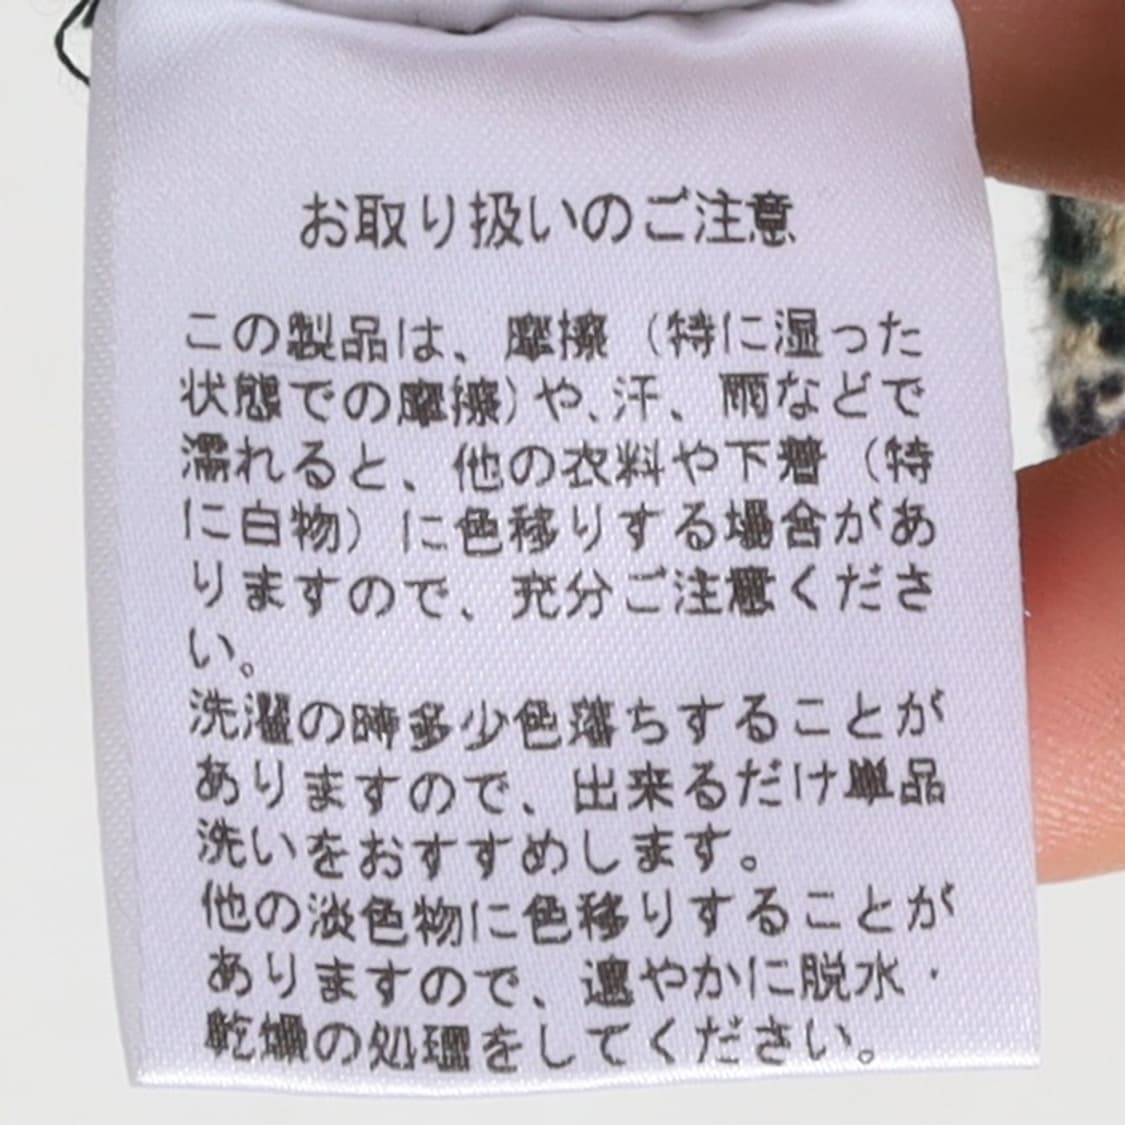 お取り扱いのご注意
この製品は、摩擦（特に湿った
状態での摩擦）や、汗、雨などで
濡れると、他の衣料や下着（特
に白物）に色移りする場合があ
りますので、充分ご注意くださ
い。
洗濯の時多少色落ちすることが
ありますので、出来るだけ単品
洗いをおすすめします。
他の淡色物に色移りすることが
ありますので、速やかに脱水・
乾燥の処理をしてください。